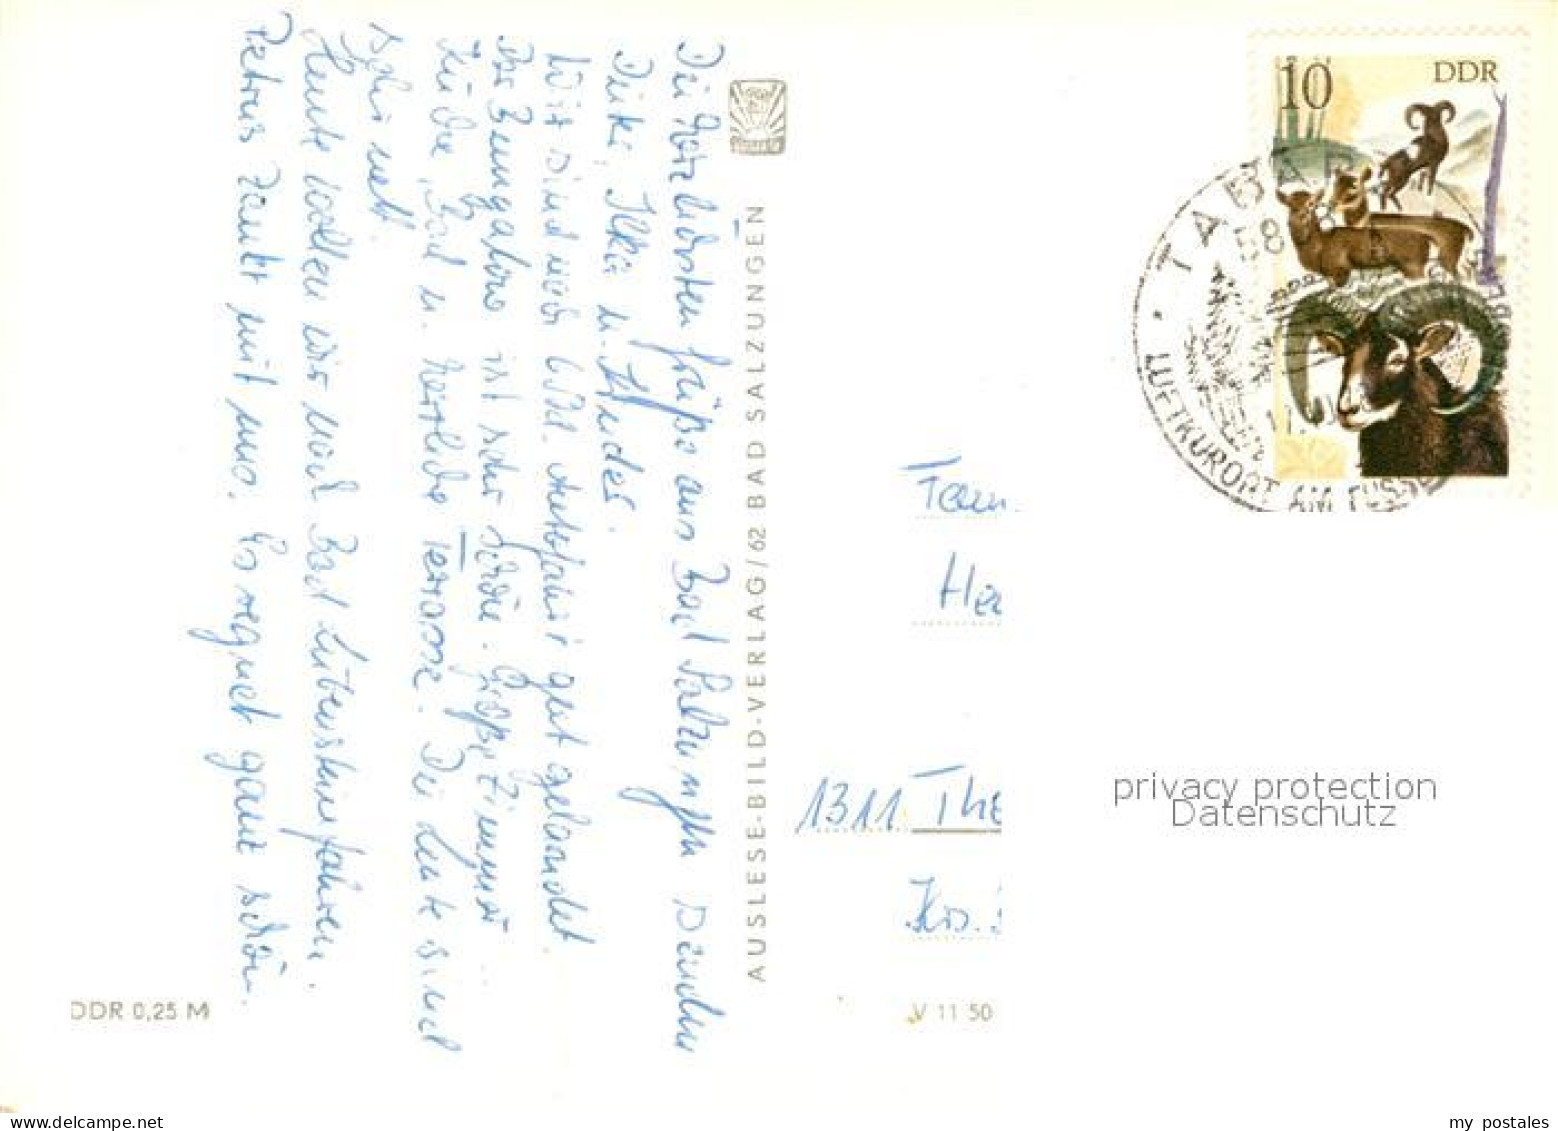 Die herzlichsten Grüße aus Bad Salzungen senden
Dirk, Ilka u. Andes.
Wir sind nach 6 Std. Autofahrt gut gelandet.
Der Bungalow ist sehr schön. Große Zimmer
Küche, Bad u. herrliche Terrasse. Die Leute sind
sehr nett.
Heute wollen wir nach Bad Liebenstein fahren.
Petrus zankt mit uns. Es regnet ganz schön.
AUSLESE-BILD-VERLAG/62 BAD SALZUNGEN
10 DDR
TABARZ
LUFTKURORT AM
Fam.
1311 The
Krs.
privacy protection
Datenschutz
DDR 0,25 M
V 11 50
delcampe.net
my postales